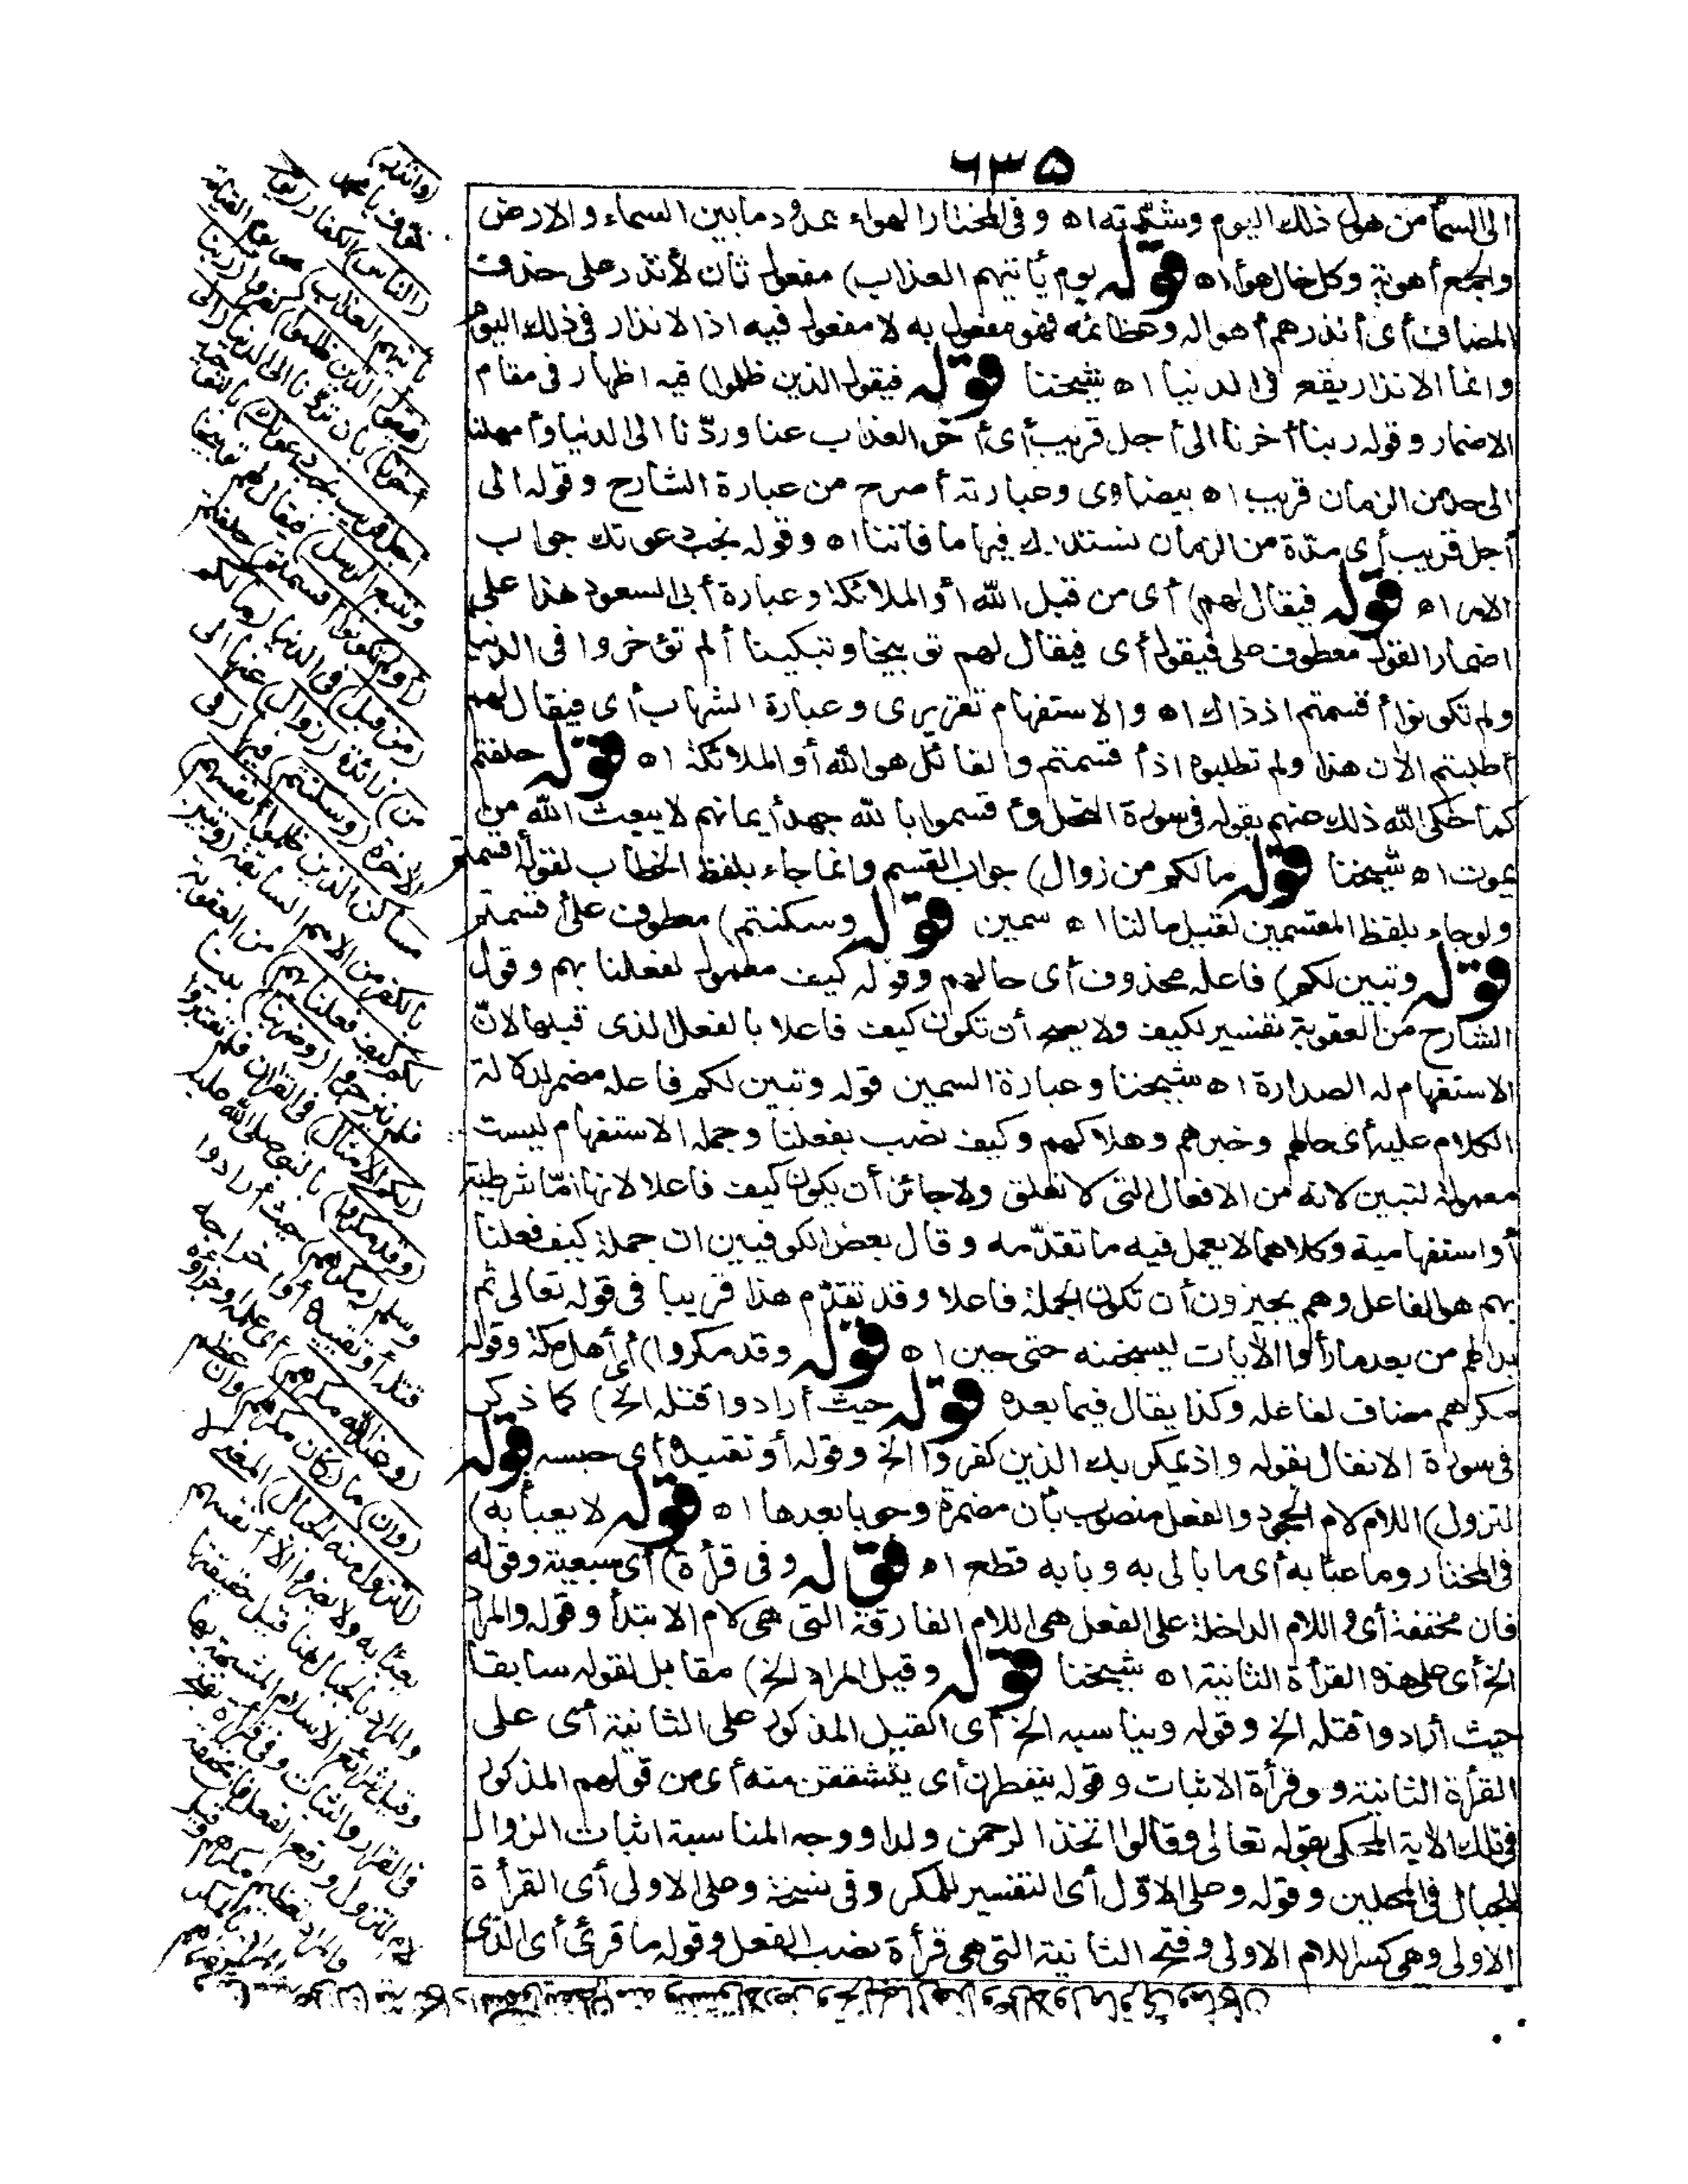 ٦٣٥
الى السمأ من هول ذلك اليوم وشدّته اه وفى المختار الهواء ممدود ما بين السماء والارض
والجمع أهوية وكل خال هوأ اه قوله يوم يأتيهم العذاب) مفعول ثان لأنذر على حذف
المضاف أى أنذرهم أهواله وعظائمه فهو مفعول به لا مفعول فيه اذ الانذار فى ذلك اليوم
وانما الانذار يقع فى الدنيا اه شيخنا قوله فيقول الذين ظلموا) فيه اظهار فى مقام
الاضمار وقوله ربنا أخرنا الى أجل قريب أى أخر العذاب عنا وردّنا الى الدنيا وأمهلنا
الى حد من الزمان قريب اه بيضاوى وعبارته أصرح من عبارة الشارح وقوله الى
أجل قريب أى مدّة من الزمان نستدرك فيها ما فاتنا اه وقوله نجب دعوتك جواب
الامر اه قوله فيقال لهم) أى من قبل الله أو الملائكة وعبارة أبى السعود هذا على
اضمار القول معطوف على فيقول أى فيقال لهم توبيخا وتبكيتا ألم تؤخروا فى الدنيا
ولم تكونوا أقسمتم اذ ذاك اه والاستفهام تقريرى وعبارة الشهاب أى فيقال لهم
أطلبتم الآن هذا ولم تطلبوه اذ أقسمتم والقائل هو الله أو الملائكة اه قوله حلفتم
كما حكى الله ذلك عنهم بقوله فى سورة النحل وأقسموا بالله جهد أيمانهم لا يبعث الله من
يموت اه شيخنا قوله مالكم من زوال) جواب القسم وانما جاء بلفظ الخطاب لقوله أقسمتم
ولو جاء بلفظ المقسمين لقيل مالنا اه سمين قوله وسكنتم) معطوف على أقسمتم
قوله وتبين لكم) فاعله محذوف أى حالهم وقوله كيف معمول لفعلنا بهم وقول
الشارح من العقوبة تفسير لكيف ولا يصح أن تكون كيف فاعلا بالفعل الذى قبلها لانّ
الاستفهام له الصدارة اه شيخنا وعبارة السمين قوله وتبين لكم فاعله مضمر لدلالة
الكلام عليه أى حالهم وخبرهم وهلاكهم وكيف نصب بفعلنا وجملة الاستفهام ليست
معمولة لتبين لانه من الافعال التى لا تعلق ولا جائز أن يكون كيف فاعلا لانها امّا شرطية
أو استفهامية وكلاهما لا يعمل فيه ما تقدّمه وقال بعض الكوفيين ان جملة كيف فعلنا
بهم هو الفاعل وهم يجيزون أن تكون الجملة فاعلا وقد تقدّم هذا قريبا فى قوله تعالى ثم
بدا لهم من بعد ما رأوا الآيات ليسجننه حتى حين اه قوله وقد مكروا) أى أهل مكة وقوله
مكرهم مضاف لفاعله وكذا يقال فيما بعده قوله حيث أرادوا قتله الخ) كما ذكر
فى سورة الانفال بقوله واذ يمكر بك الذين كفروا الخ وقوله أو تقييده أى حبسه قوله
لتزول) اللام لام الجحود والفعل منصوب بأن مضمرة وجوبا بعدها اه قوله لا يعبأ به)
فى المختار وما عبأ به أى ما بالى به وبابه قطع اه قوله وفى قرأة) أى سبعية وقوله
فان مخففة أى واللام الداخلة على الفعل هى اللام الفارقة التى هى لام الابتدأ وقوله والمراد
الخ أى على هذه القرأة الثانية اه شيخنا قوله وقيل المراد الخ) مقابل لقوله سابقا
حيث أرادوا قتله الخ وقوله ويناسبه الخ أى القيل المذكور على الثانية أى على
القرأة الثانية وقرأة الاثبات وقوله يتفطرن أى يتشققن منه أى من قولهم المذكور
فى تلك الآية المحكى بقوله تعالى وقالوا اتخذ الرحمن ولدا ووجه المناسبة اثبات الزوال
للجبال فى المحلين وقوله وعلى الاوّل أى التفسير للمكر وفى نسخة وعلى الاولى أى القرأة
الاولى وهى كسر اللام الاولى وفتح الثانية التى هى قرأة نصب الفعل وقوله ما قرئ أى الذى
(وأنذر)
خوّف يا محمد
(الناس) الكفار (يوم
يأتيهم العذاب) هو يوم القيامة
(فيقول الذين ظلموا) كفروا (ربنا
أخرنا) بأن تردّنا الى الدنيا (الى
أجل قريب نجب دعوتك) بالتوحيد
ونتبع الرسل) فيقال لهم توبيخا
(أولم تكونوا أقسمتم) حلفتم
(من قبل) فى الدنيا (مالكم
من) زائدة (زوال) عنها الى
الآخرة (وسكنتم) فيها (فى
مساكن الذين ظلموا أنفسهم)
بالكفر من الامم السابقة (وتبين
لكم كيف فعلنا بهم) من العقوبة
فلم تنزجروا (وضربنا) بينا
(لكم الامثال) فى القرآن فلم تعتبروا
(وقد مكروا) بالنبى صلى الله عليه
وسلم (مكرهم) حيث أرادوا
قتله أو تقييده أو اخراجه
(وعند الله مكرهم) أى علمه وجزاؤه
(وان) ما (كان مكرهم) وان عظم
(لتزول منه الجبال) المعنى لا
يعبأ به ولا يضر الا أنفسهم
والمراد بالجبال هنا قيل حقيقتها
وقيل شرائع الاسلام المشبهة بها
فى القرار والثبات وفى قرأة بفتح
لام لتزول ورفع الفعل فان مخففة
والمراد تعظيم مكرهم وقيل